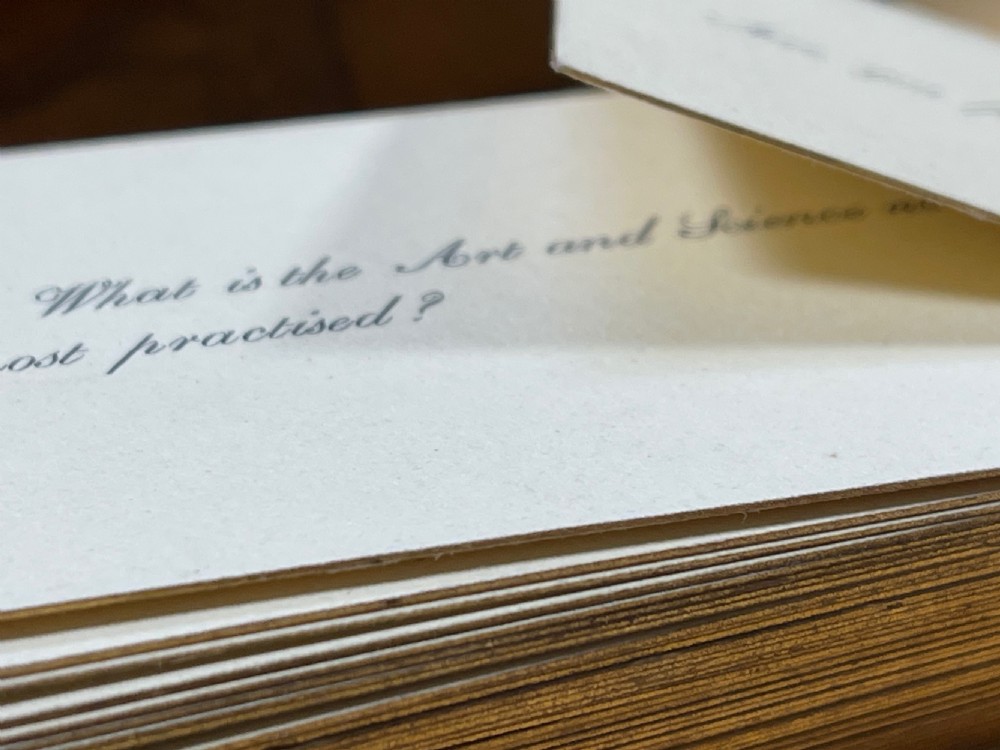 What is the Art and Science
practised?